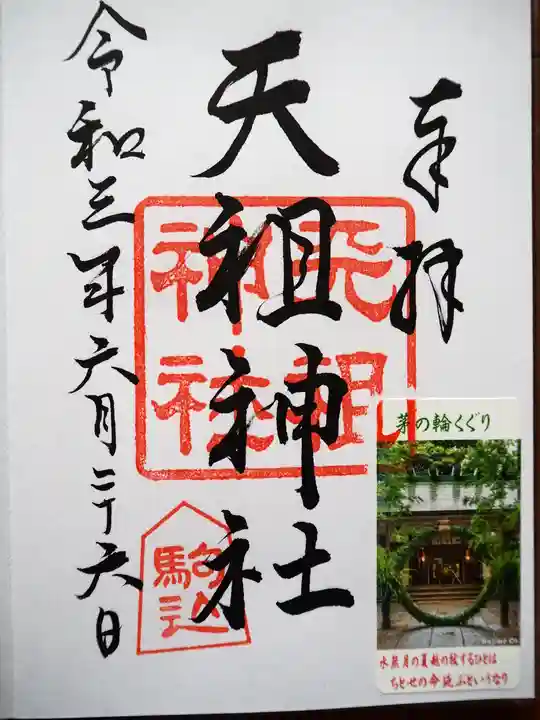 奉拝
天祖神社
天祖
神社
駒込
令和三年六月二十六日
茅の輪くぐり
水無月の夏越の祓するひとは
ちとせの命延ふといふなり